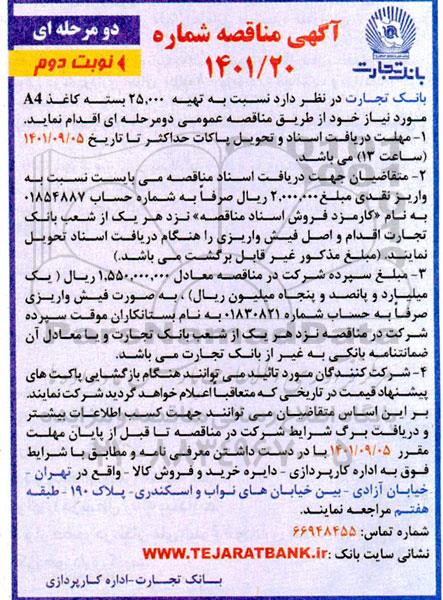 آگهی مناقصه شماره
۱۴۰۱/۲۰
دو مرحله ای
نوبت دوم
بانک تجارت
بانک تجارت در نظر دارد نسبت به تهیه ۲۵,۰۰۰ بسته کاغذ A4
مورد نیاز خود از طریق مناقصه عمومی دومرحله ای اقدام نماید.
۱- مهلت دریافت اسناد و تحویل پاکات حداکثر تا تاریخ ۱۴۰۱/۰۹/۰۵
(ساعت ۱۳) می باشد.
۲- متقاضیان جهت دریافت اسناد مناقصه می بایست نسبت به
واریز نقدی مبلغ ۲,۰۰۰,۰۰۰ ریال صرفاً به شماره حساب ۰۱۸۵۴۸۸۷
به نام «کارمزد فروش اسناد مناقصه» نزد هر یک از شعب بانک
تجارت اقدام و اصل فیش واریزی را هنگام دریافت اسناد تحویل
نمایند. (مبلغ مذکور غیر قابل برگشت می باشد.)
۳- مبلغ سپرده شرکت در مناقصه معادل ۱,۵۵۰,۰۰۰,۰۰۰ ریال ( یک
میلیارد و پانصد و پنجاه میلیون ریال) ، به صورت فیش واریزی
صرفاً به حساب شماره ۰۱۸۳۰۸۲۱ به نام بستانکاران موقت سپرده
شرکت در مناقصه نزد هر یک از شعب بانک تجارت و یا معادل آن
ضمانتنامه بانکی به غیر از بانک تجارت می باشد.
۴- شرکت کنندگان مورد تائید می توانند هنگام بازگشایی پاکت های
پیشنهاد قیمت در تاریخی که متعاقباً اعلام خواهد گردید شرکت نمایند.
بر این اساس متقاضیان می توانند جهت کسب اطلاعات بیشتر
و دریافت برگ شرایط شرکت در مناقصه تا قبل از پایان مهلت
مقرر ۱۴۰۱/۰۹/۰۵ با در دست داشتن معرفی نامه و مطابق با شرایط
فوق به اداره کارپردازی - دایره خرید و فروش کالا - واقع در تهران -
خیابان آزادی - بین خیابان های نواب و اسکندری- پلاک ۱۹۰- طبقه
هفتم مراجعه نمایند.
شماره تماس: ۶۶۹۴۸۴۵۵
نشانی سایت بانک : WWW.TEJARATBANK.ir
بانک تجارت-اداره کارپردازی